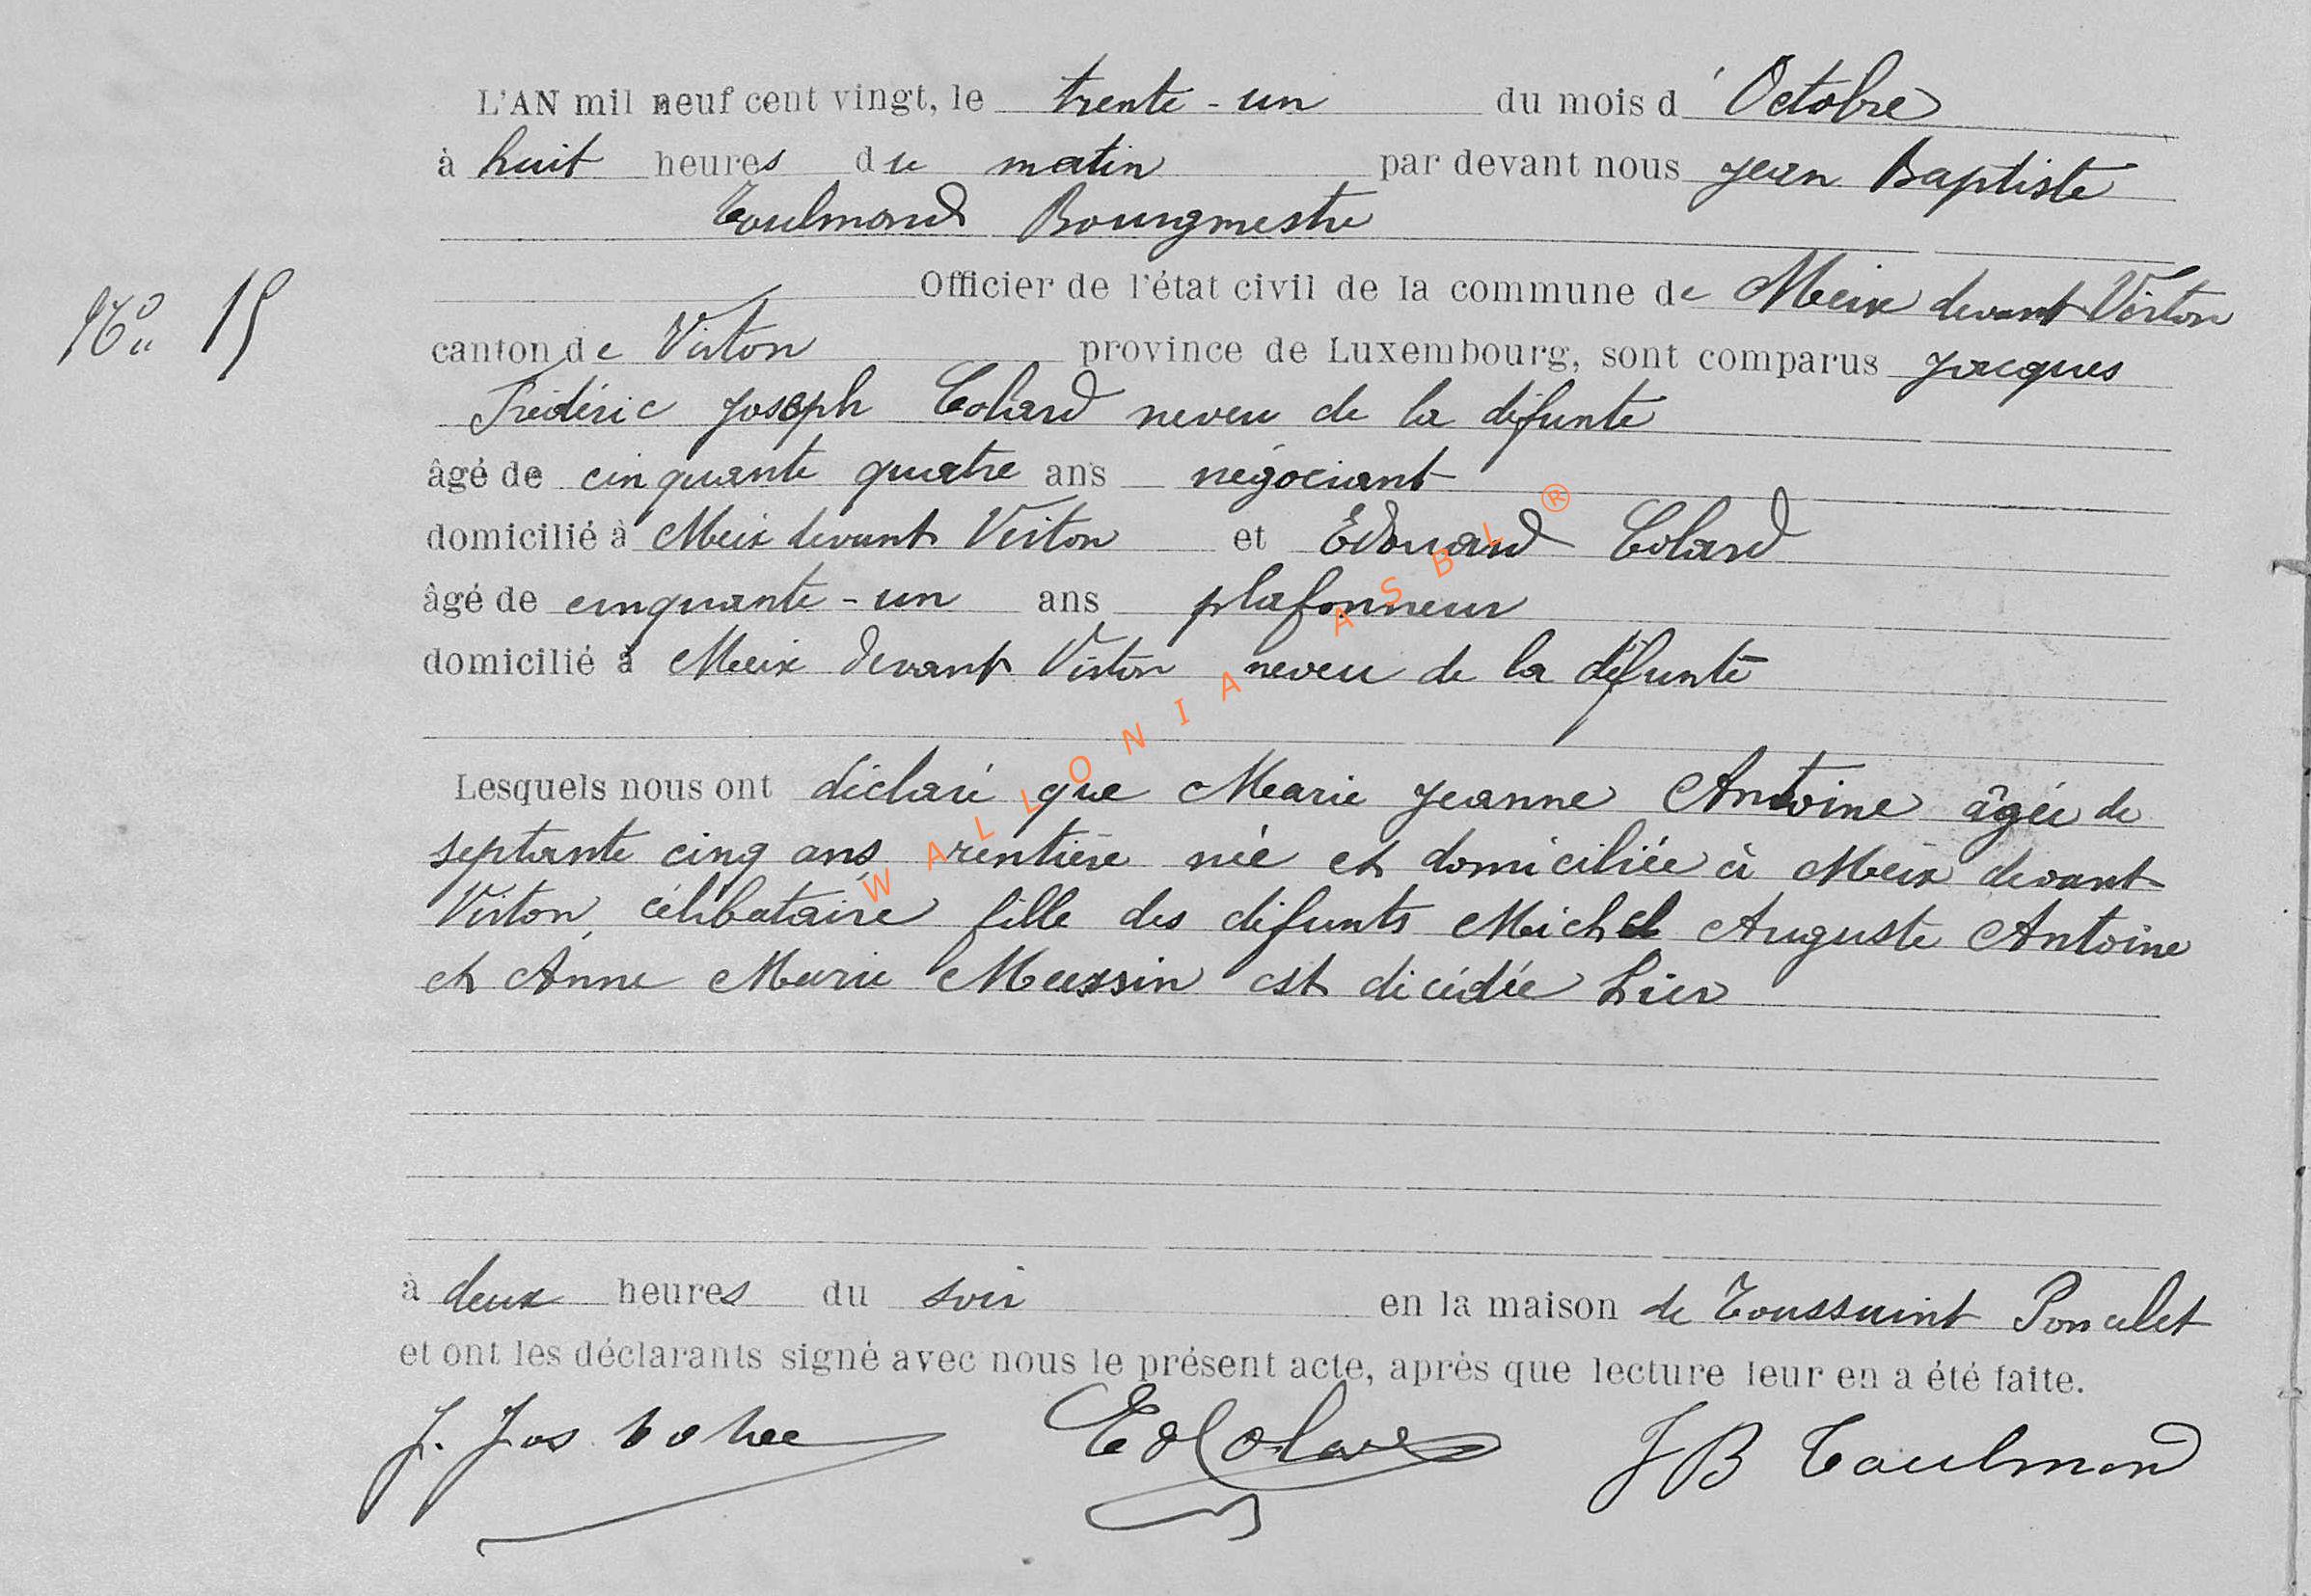 L'AN mil neuf cent vingt, le trente-un du mois d'Octobre
à huit heures du matin par devant nous Jean Baptiste
Toulmond Bourgmestre
Officier de l'état civil de la commune de Meix devant Virton
No 15
canton de Virton province de Luxembourg, sont comparus Jacques
Frédéric Joseph Colard neveu de la défunte
âgé de cinquante quatre ans négociant
domicilié à Meix devant Virton et Edouard Colard
âgé de cinquante-un ans plafonneur
domicilié à Meix devant Virton neveu de la défunte
Lesquels nous ont déclaré que Marie Jeanne Antoine âgée de
septante cinq ans, rentière née et domiciliée à Meix devant
Virton, célibataire fille des défunts Michel Auguste Antoine
et Anne Marie Messin est décédée hier
à deux heures du soir en la maison de Toussaint Poncelet
et ont les déclarants signé avec nous le présent acte, après que lecture leur en a été faite.
J. Jos Ed Colard J B Toulmond
WALLONIA ASBL ®